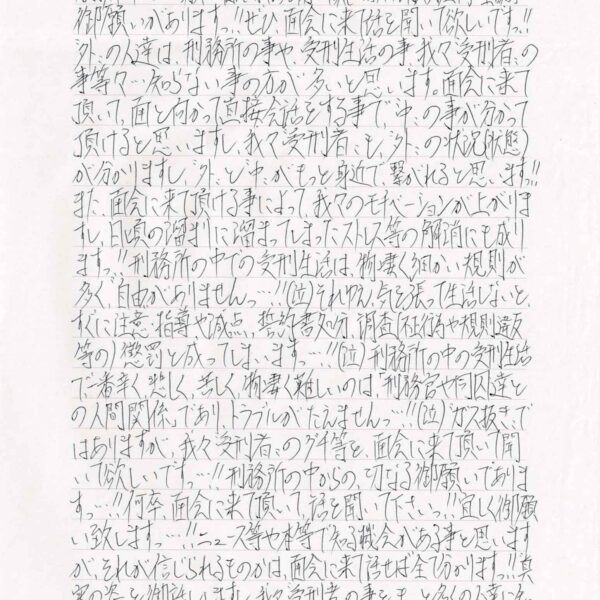 御願いがあります。っ!!ぜひ面会に来て話を聞いて欲しいですっ!!
“外”の人達は、刑務所の事や、受刑生活の事、我々“受刑者”の
事等々…知らない事の方が多いと思います。面会に来て
頂いて、面と向かって直接会話をする事で“中”の事が分かって
頂けると思いますし、我々“受刑者”も、“外”の状況(状態)
が分かりますし、“外”と“中”がもっと身近で、繋がれると思いますっ!!
また、面会に来て頂ける事によって、我々のモチベーションが上がりま
すし、日頃の溜まりに溜まってしまったストレス等の解消にも成り
ますっ!!刑務所の中での受刑生活は、物凄く細かい規則が
多く、自由がありませんっ…!!(泣)それゆえ、気を張って生活しないと、
すぐに注意・指導や減点、誓約書処分、調査(不正行為や規則違反
等の)懲罰と成ってしまいますっ…!!(泣)刑務所の中の受刑生活
で一番辛く、悲しく、苦しく、物凄く難しいのは、刑務官や同囚達と
の人間関係であり、トラブルがたえませんっ…!!(泣)“ガス抜き”で
はありますが、我々“受刑者”のグチ等を、面会に来て頂いて聞
いて欲しいですっ…!!刑務所の中からの、切なる御願いでありま
すっ…!!何卒、面会に来て頂いて、話を聞いて下さいっ…!!宜しく御願
い致しますっ…!!ニュース等や本等で知る機会がある事と思います
が、それが信じられるものかは、面会に来て話せば全て分かりますっ!!真